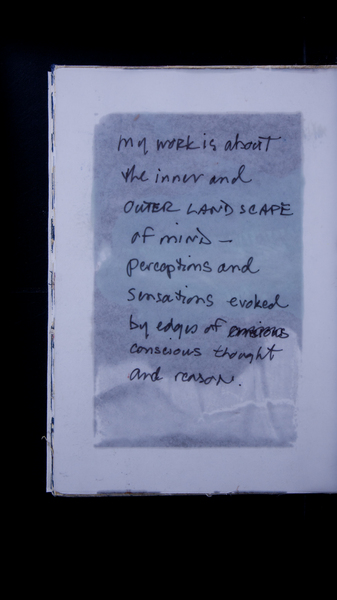 my work is about
the inner and
OUTER LANDSCAPE
of MIND –
perceptions and
sensations evoked
by edges of
conscious thought
and reason.